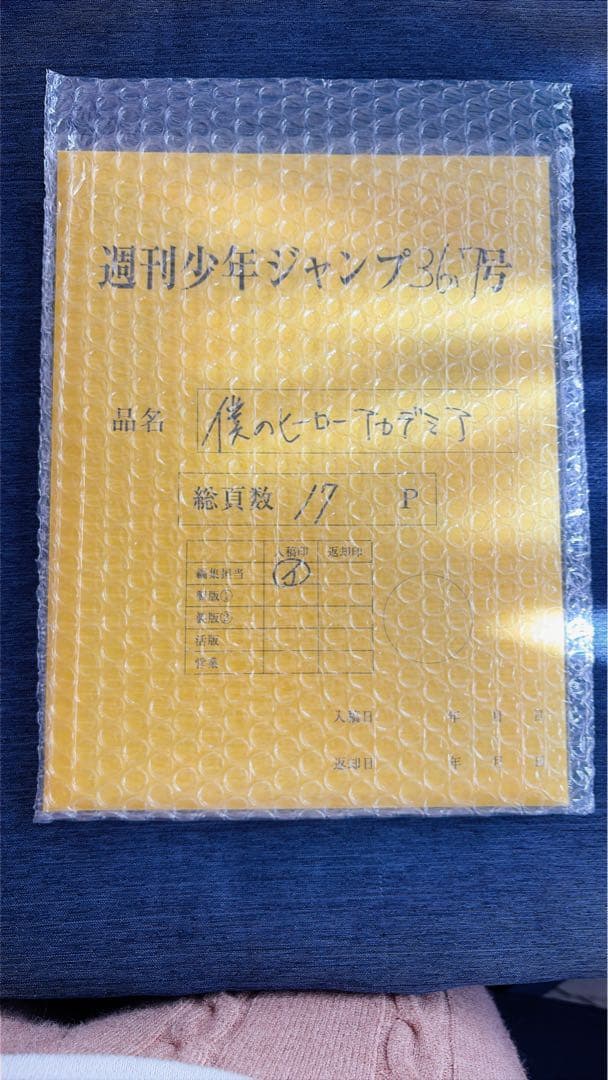 週刊少年ジャンプ367号
品名 僕のヒーローアカデミア
総頁数 17 P
入稿印 返却印
編集担当 イ
製版①
製版②
活版
営業
入稿日 年 月 日
返却日 年 月 日